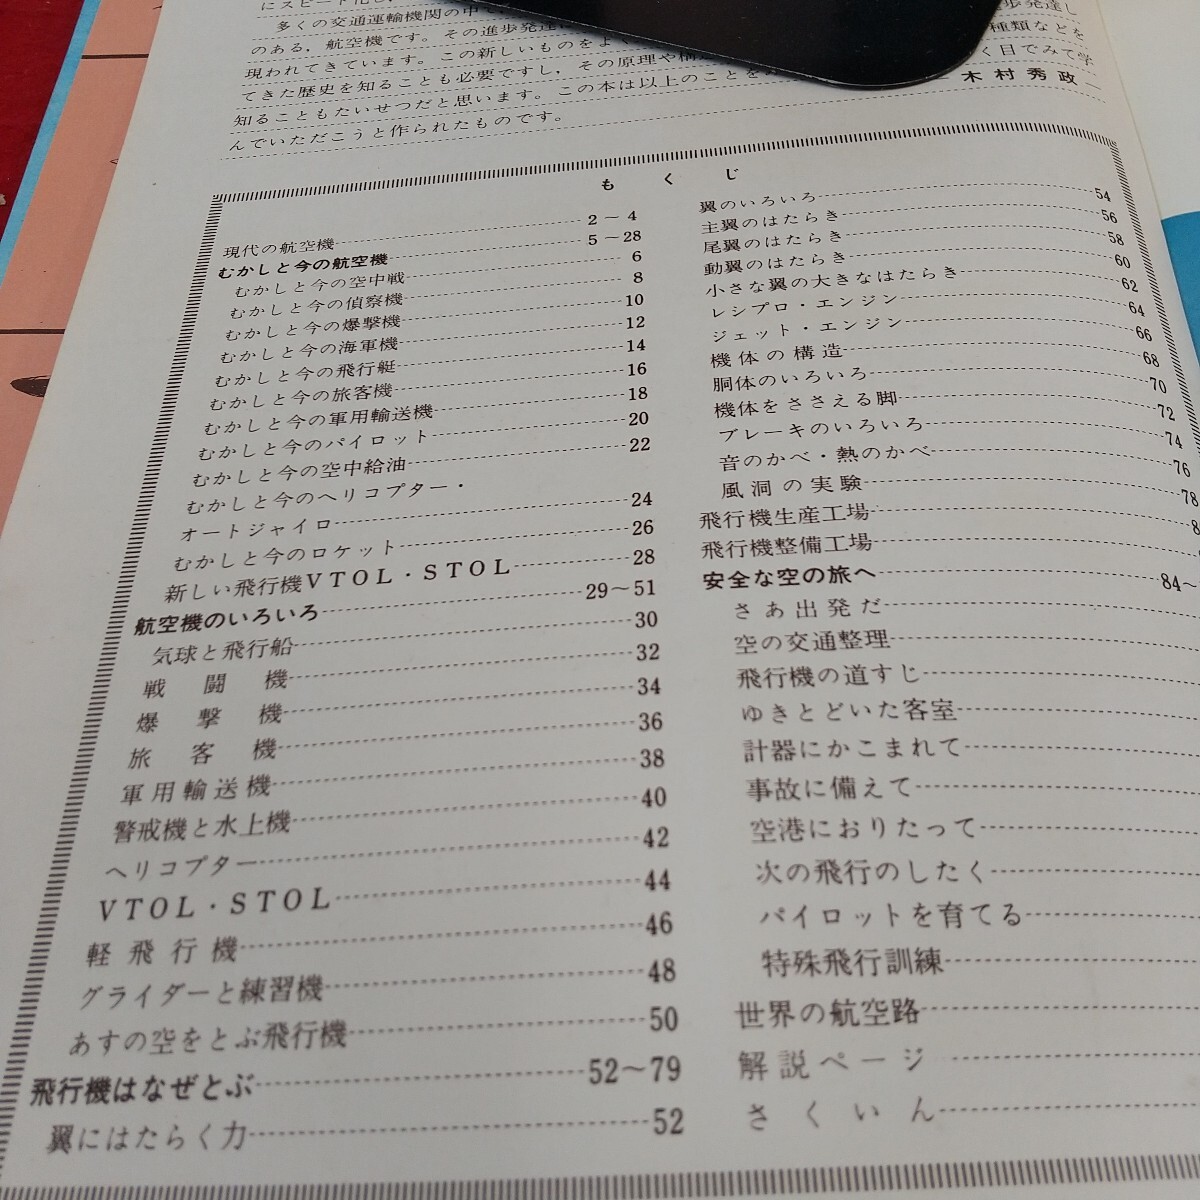 にスピード化し
多くの交通運輸機関の中
歩発達し
のある，航空機です。その進歩発達
種類などを
現われてきています。この新しいものをよく
く目でみて学
てきた歴史を知ることも必要ですし，その原理や構
知ることもたいせつだと思います。この本は以上のことを
んでいただこうと作られたものです。
木村秀政
もくじ
現代の航空機 2～4
むかしと今の航空機 5～28
むかしと今の空中戦 6
むかしと今の偵察機 8
むかしと今の爆撃機 10
むかしと今の海軍機 12
むかしと今の飛行艇 14
むかしと今の旅客機 16
むかしと今の軍用輸送機 18
むかしと今のパイロット 20
むかしと今の空中給油 22
むかしと今のヘリコプター・
オートジャイロ 24
むかしと今のロケット 26
新しい飛行機VTOL・STOL 28
航空機のいろいろ 29～51
気球と飛行船 30
戦闘機 32
爆撃機 34
旅客機 36
軍用輸送機 38
警戒機と水上機 40
ヘリコプター 42
VTOL・STOL 44
軽飛行機 46
グライダーと練習機 48
あすの空をとぶ飛行機 50
飛行機はなぜとぶ 52～79
翼にはたらく力 52
翼のいろいろ 54
主翼のはたらき 56
尾翼のはたらき 58
動翼のはたらき 60
小さな翼の大きなはたらき 62
レシプロ・エンジン 64
ジェット・エンジン 66
機体の構造 68
胴体のいろいろ 70
機体をささえる脚 72
ブレーキのいろいろ 74
音のかべ・熱のかべ 76
風洞の実験 78
飛行機生産工場 8
飛行機整備工場
安全な空の旅へ 84～
さぁ出発だ
空の交通整理
飛行機の道すじ
ゆきとどいた客室
計器にかこまれて
事故に備えて
空港におりたって
次の飛行のしたく
パイロットを育てる
特殊飛行訓練
世界の航空路
解説ページ
さくいん